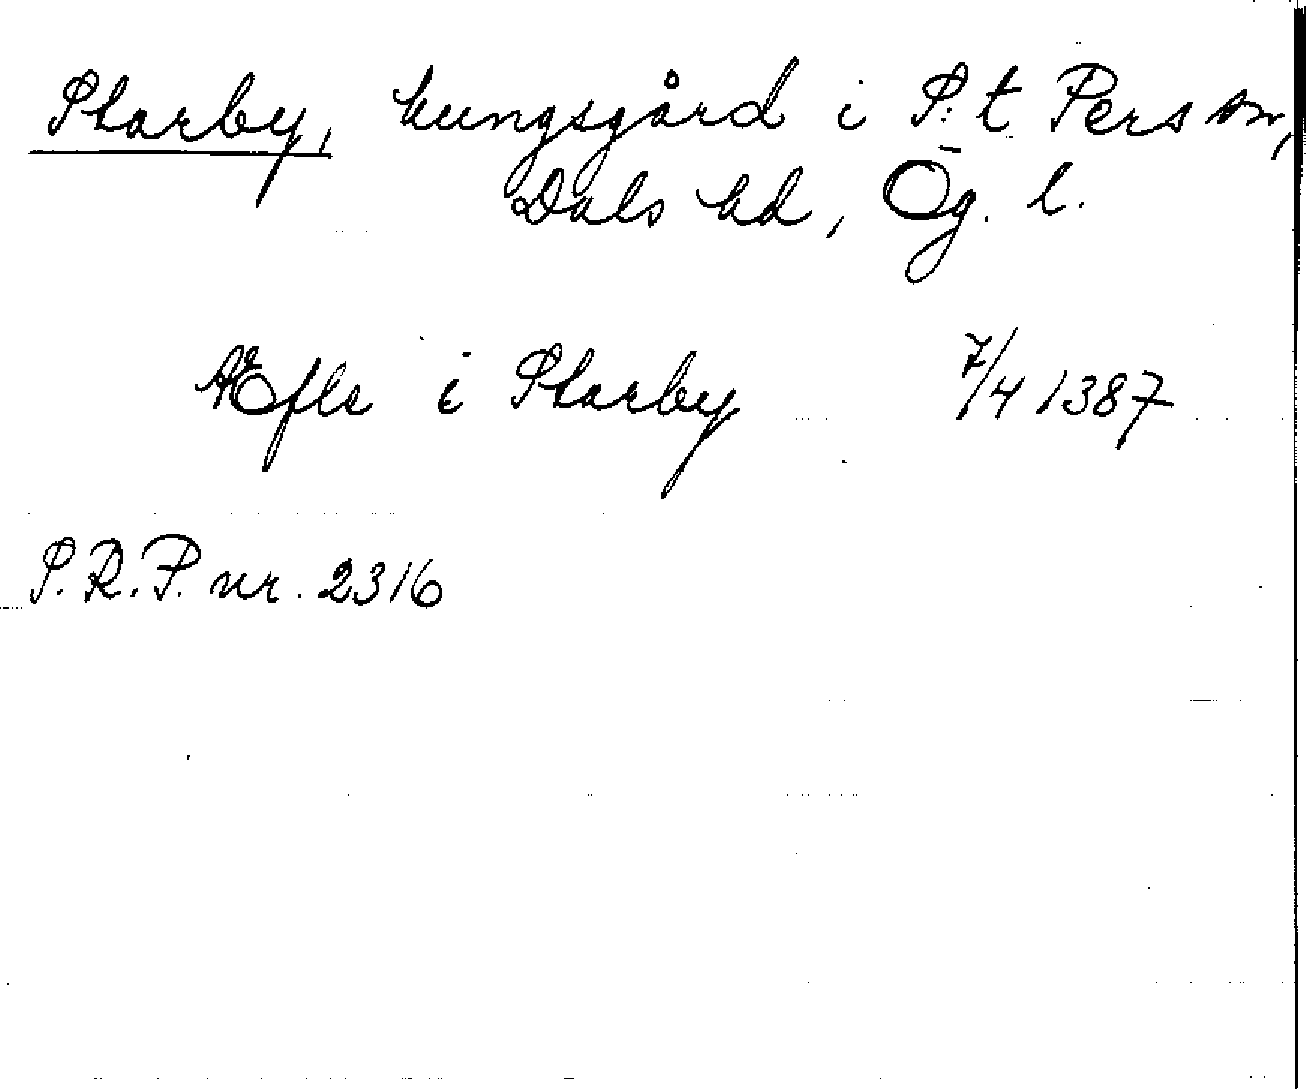 Starby, kungsgård i S:t Pers sn,
Dals hd, Ög. l.
Æfle i Starby 7/4 1387
S.R.P. nr. 2316